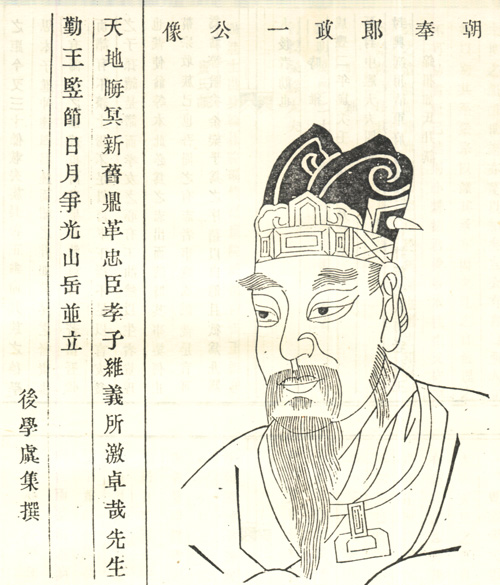 朝奉郎政一公像
天地晦冥新舊鼎革忠臣孝子維義所激卓哉先生
勤王竪節日月爭光山岳並立
後學虞集撰